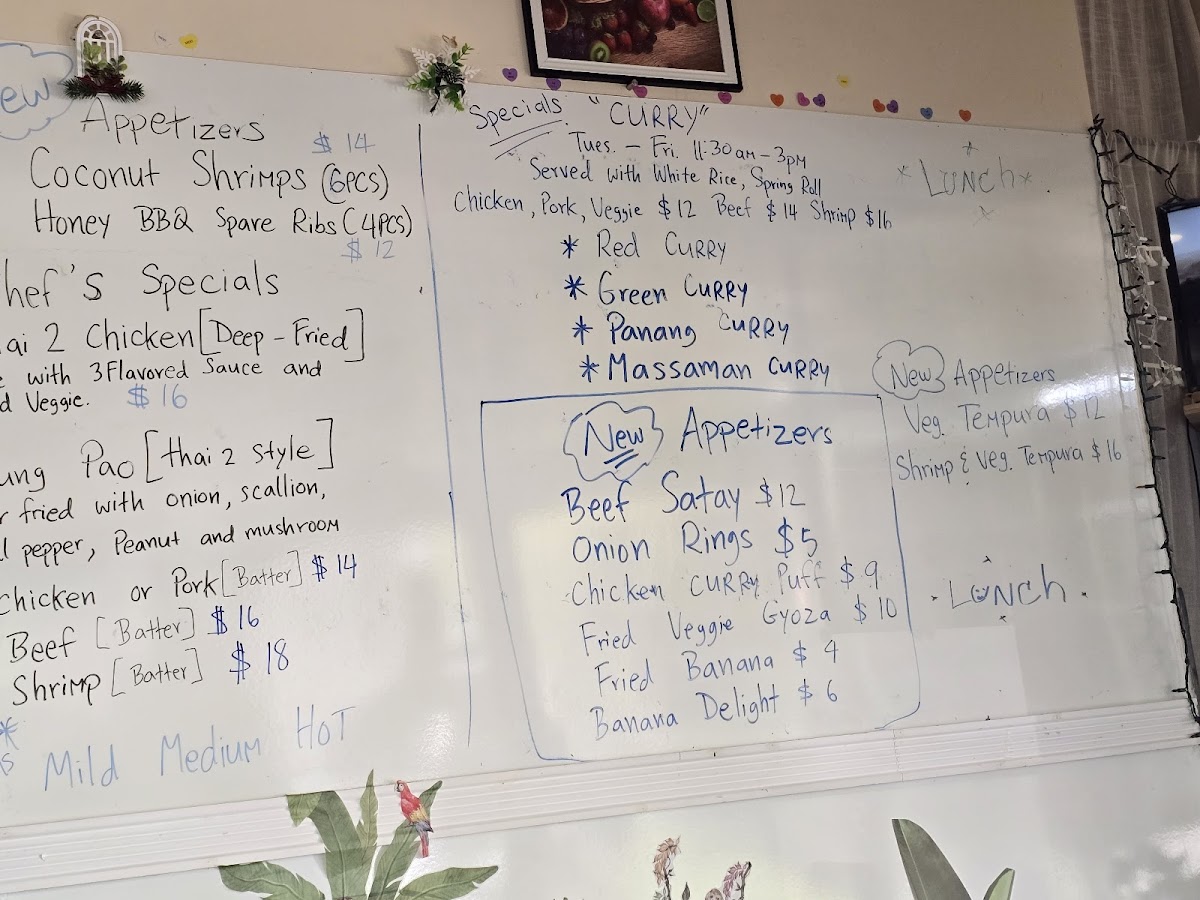 Appetizers
$ 14
Coconut Shrimps (6PCS)
Honey BBQ Spare Ribs (4PCS)
$ 12
Specials
2 Chicken [Deep-Fried]
with 3 Flavored Sauce and
Veggie. $ 16
Pao [thai 2 style]
fried with onion, scallion,
pepper, Peanut and mushroom
Chicken or Pork [Batter] $ 14
Beef [Batter] $ 16
Shrimp [Batter] $ 18
Mild Medium HOT
Specials "CURRY"
Tues. - Fri. 11:30 am - 3 pm
Served with White Rice, Spring Roll
Chicken, Pork, Veggie $ 12 Beef $ 14 Shrimp $ 16
* Red CURRY
* Green CURRY
* Panang CURRY
* Massaman CURRY
New Appetizers
Beef Satay $ 12
Onion Rings $ 5
Chicken CURRY Puff $ 9
Fried Veggie Gyoza $ 10
Fried Banana $ 4
Banana Delight $ 6
* Lunch *
New Appetizers
Veg. Tempura $ 12
Shrimp & Veg. Tempura $ 16
Lunch